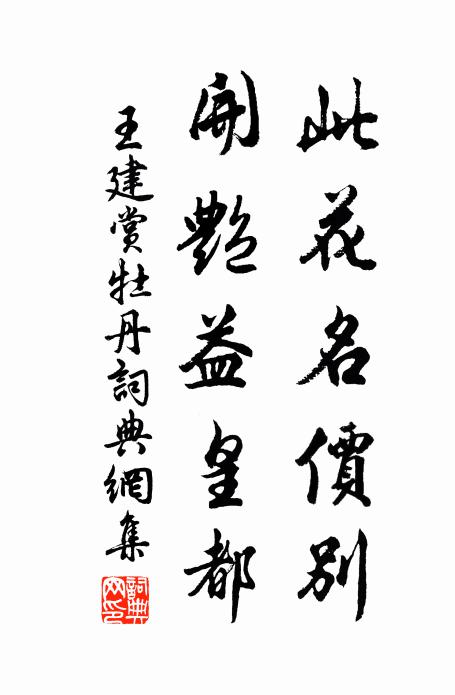 此花名價別
開艷益皇都
王建賞牡丹詞典網集
詞典網印